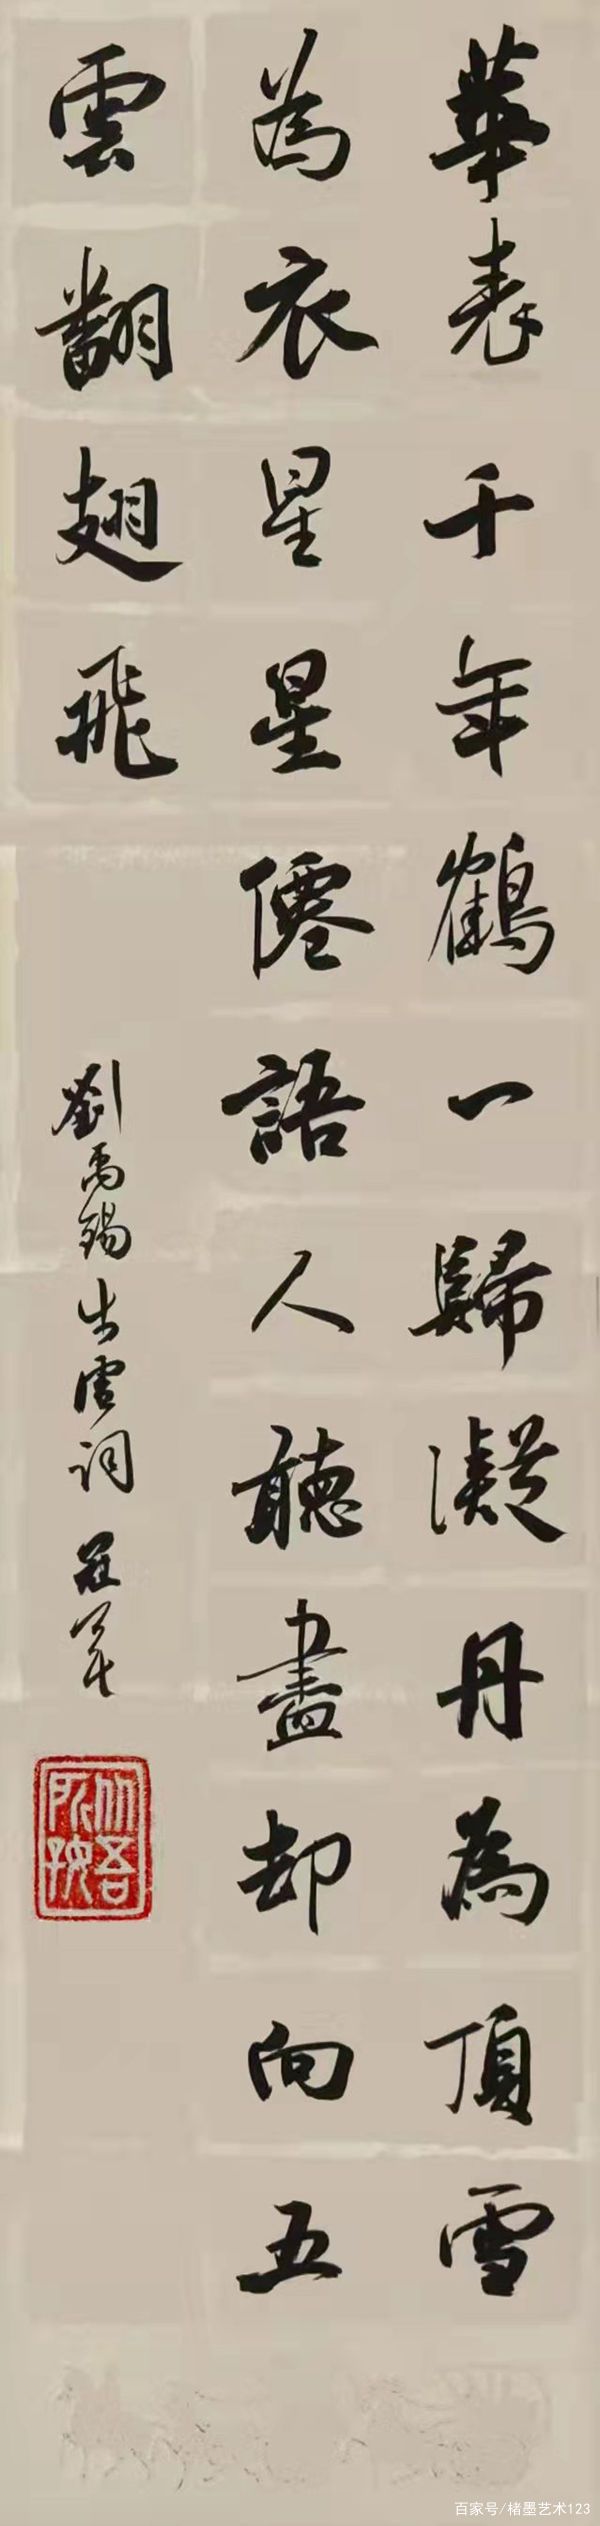 華表千年鶴一歸凝丹為頂雪
為衣星星僊語人聽盡却向五
雲翻翅飛
劉禹錫步虛詞
百家号/楮墨艺术123